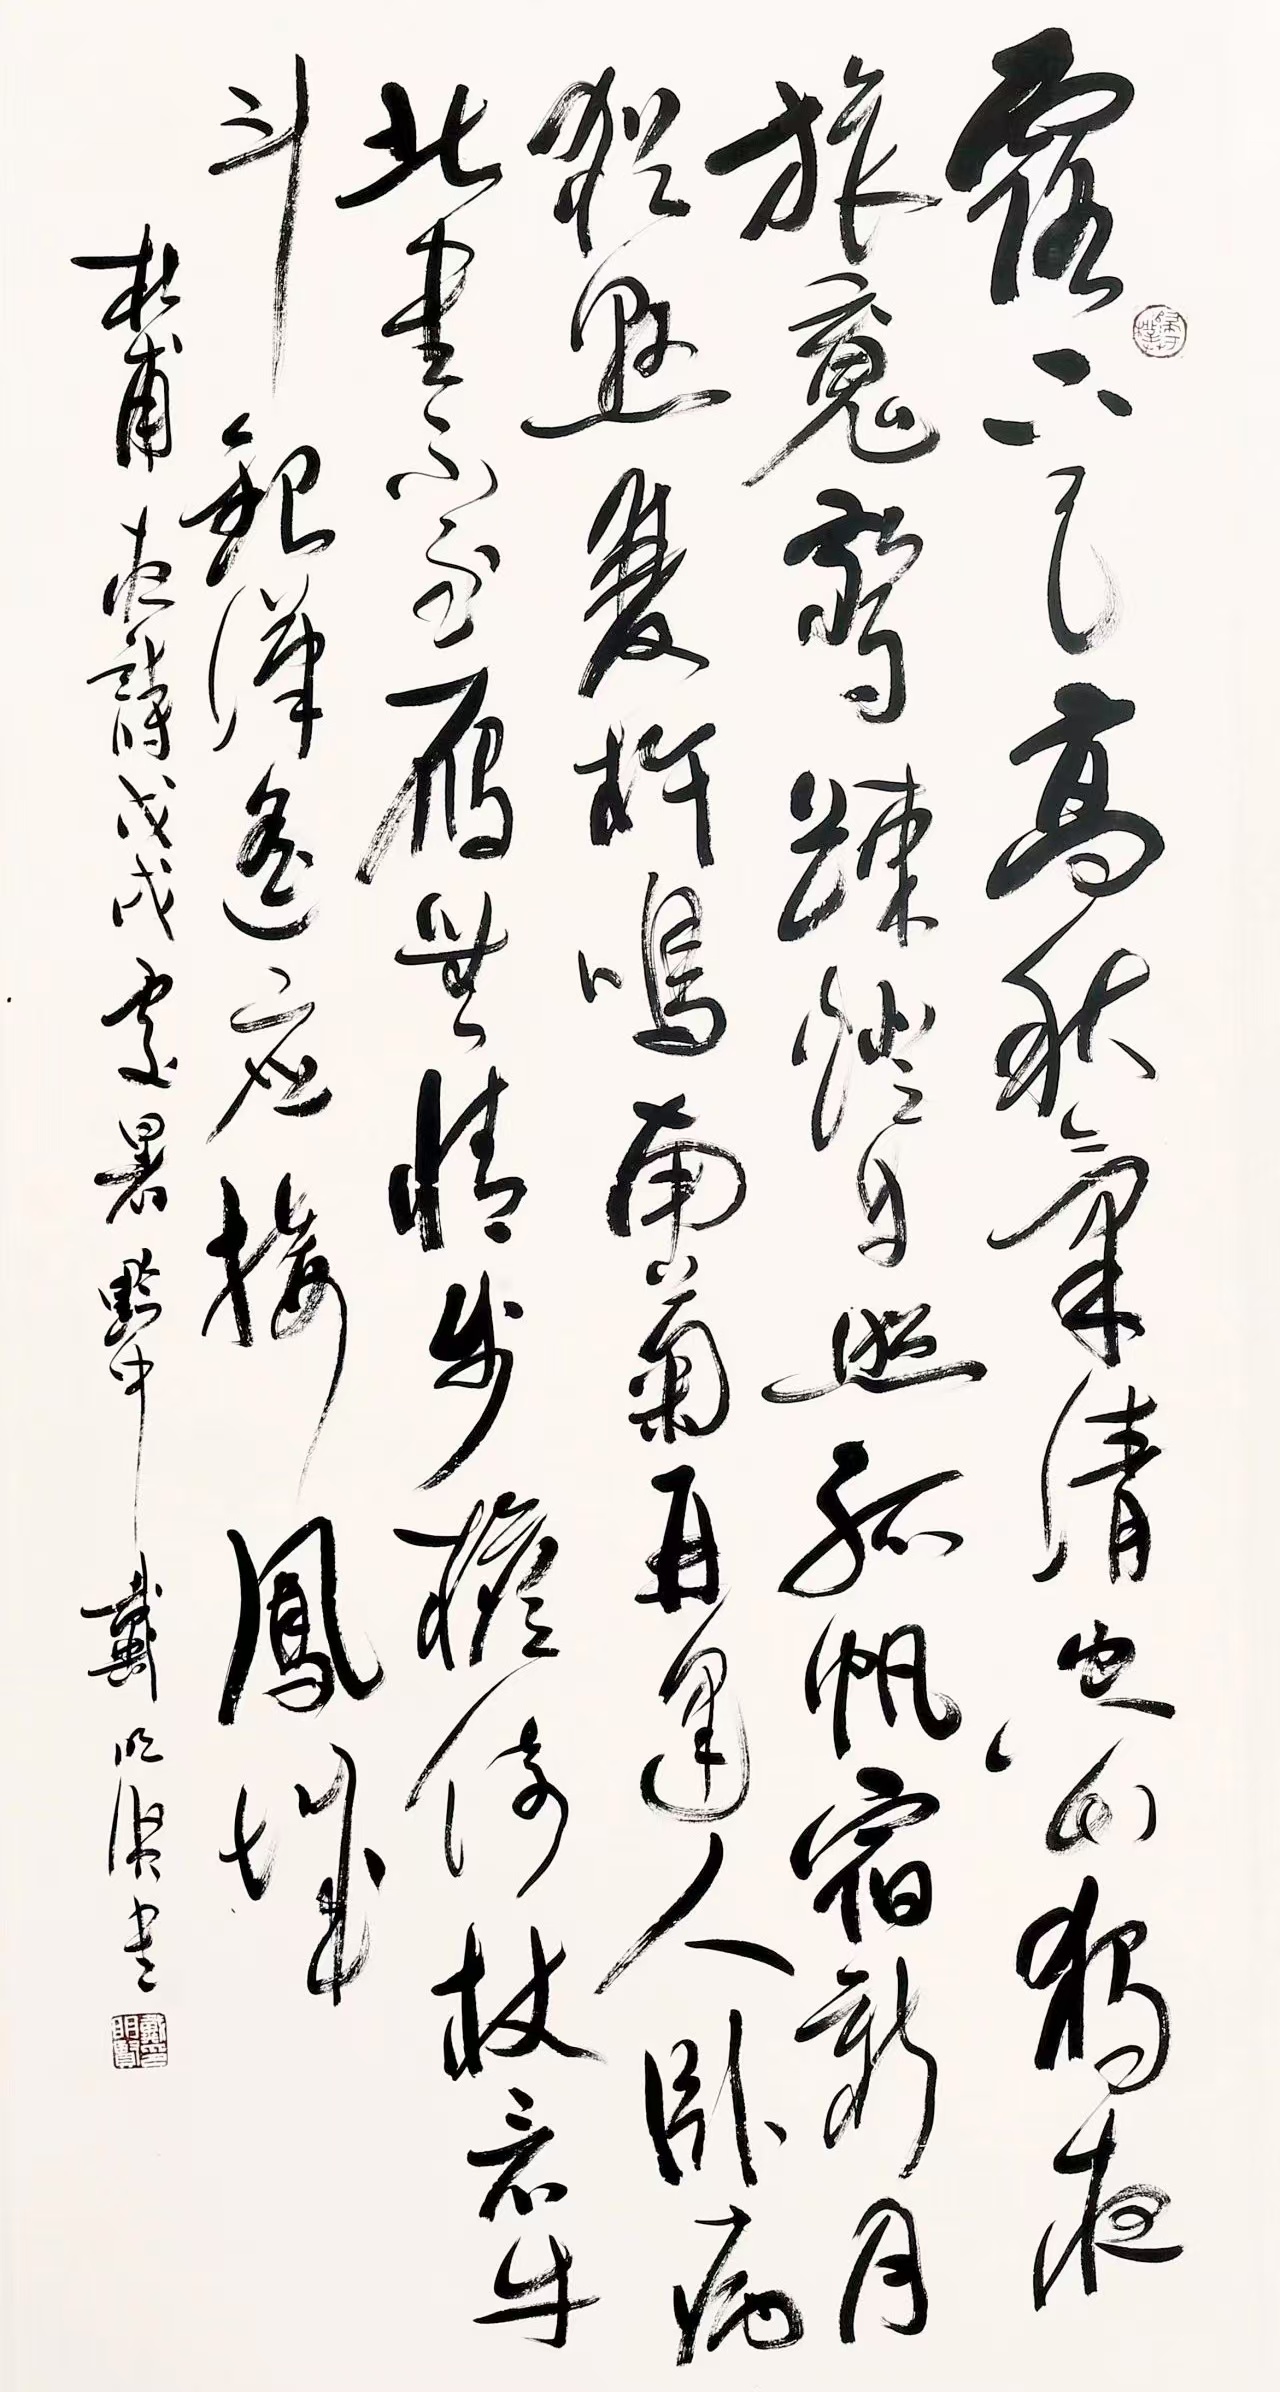 露下天高秋氣清空山獨夜
旅魂驚疎燈自照孤帆宿新月
猶懸雙杵鳴南菊再逢人卧病
北書不至鴈無情步檐倚杖看牛
斗銀漢遙應接鳳城
杜甫夜詩戊戌處暑黔中戴明賢書
戴明賢印